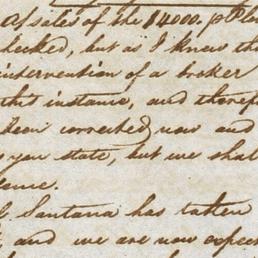 of sales of the $4000. p
checked, but as I knew tha
intervention of a broker
this instance, and therefo
been corrected now and
you state, but we shal
ence.
Santana has taken
and we are now expec